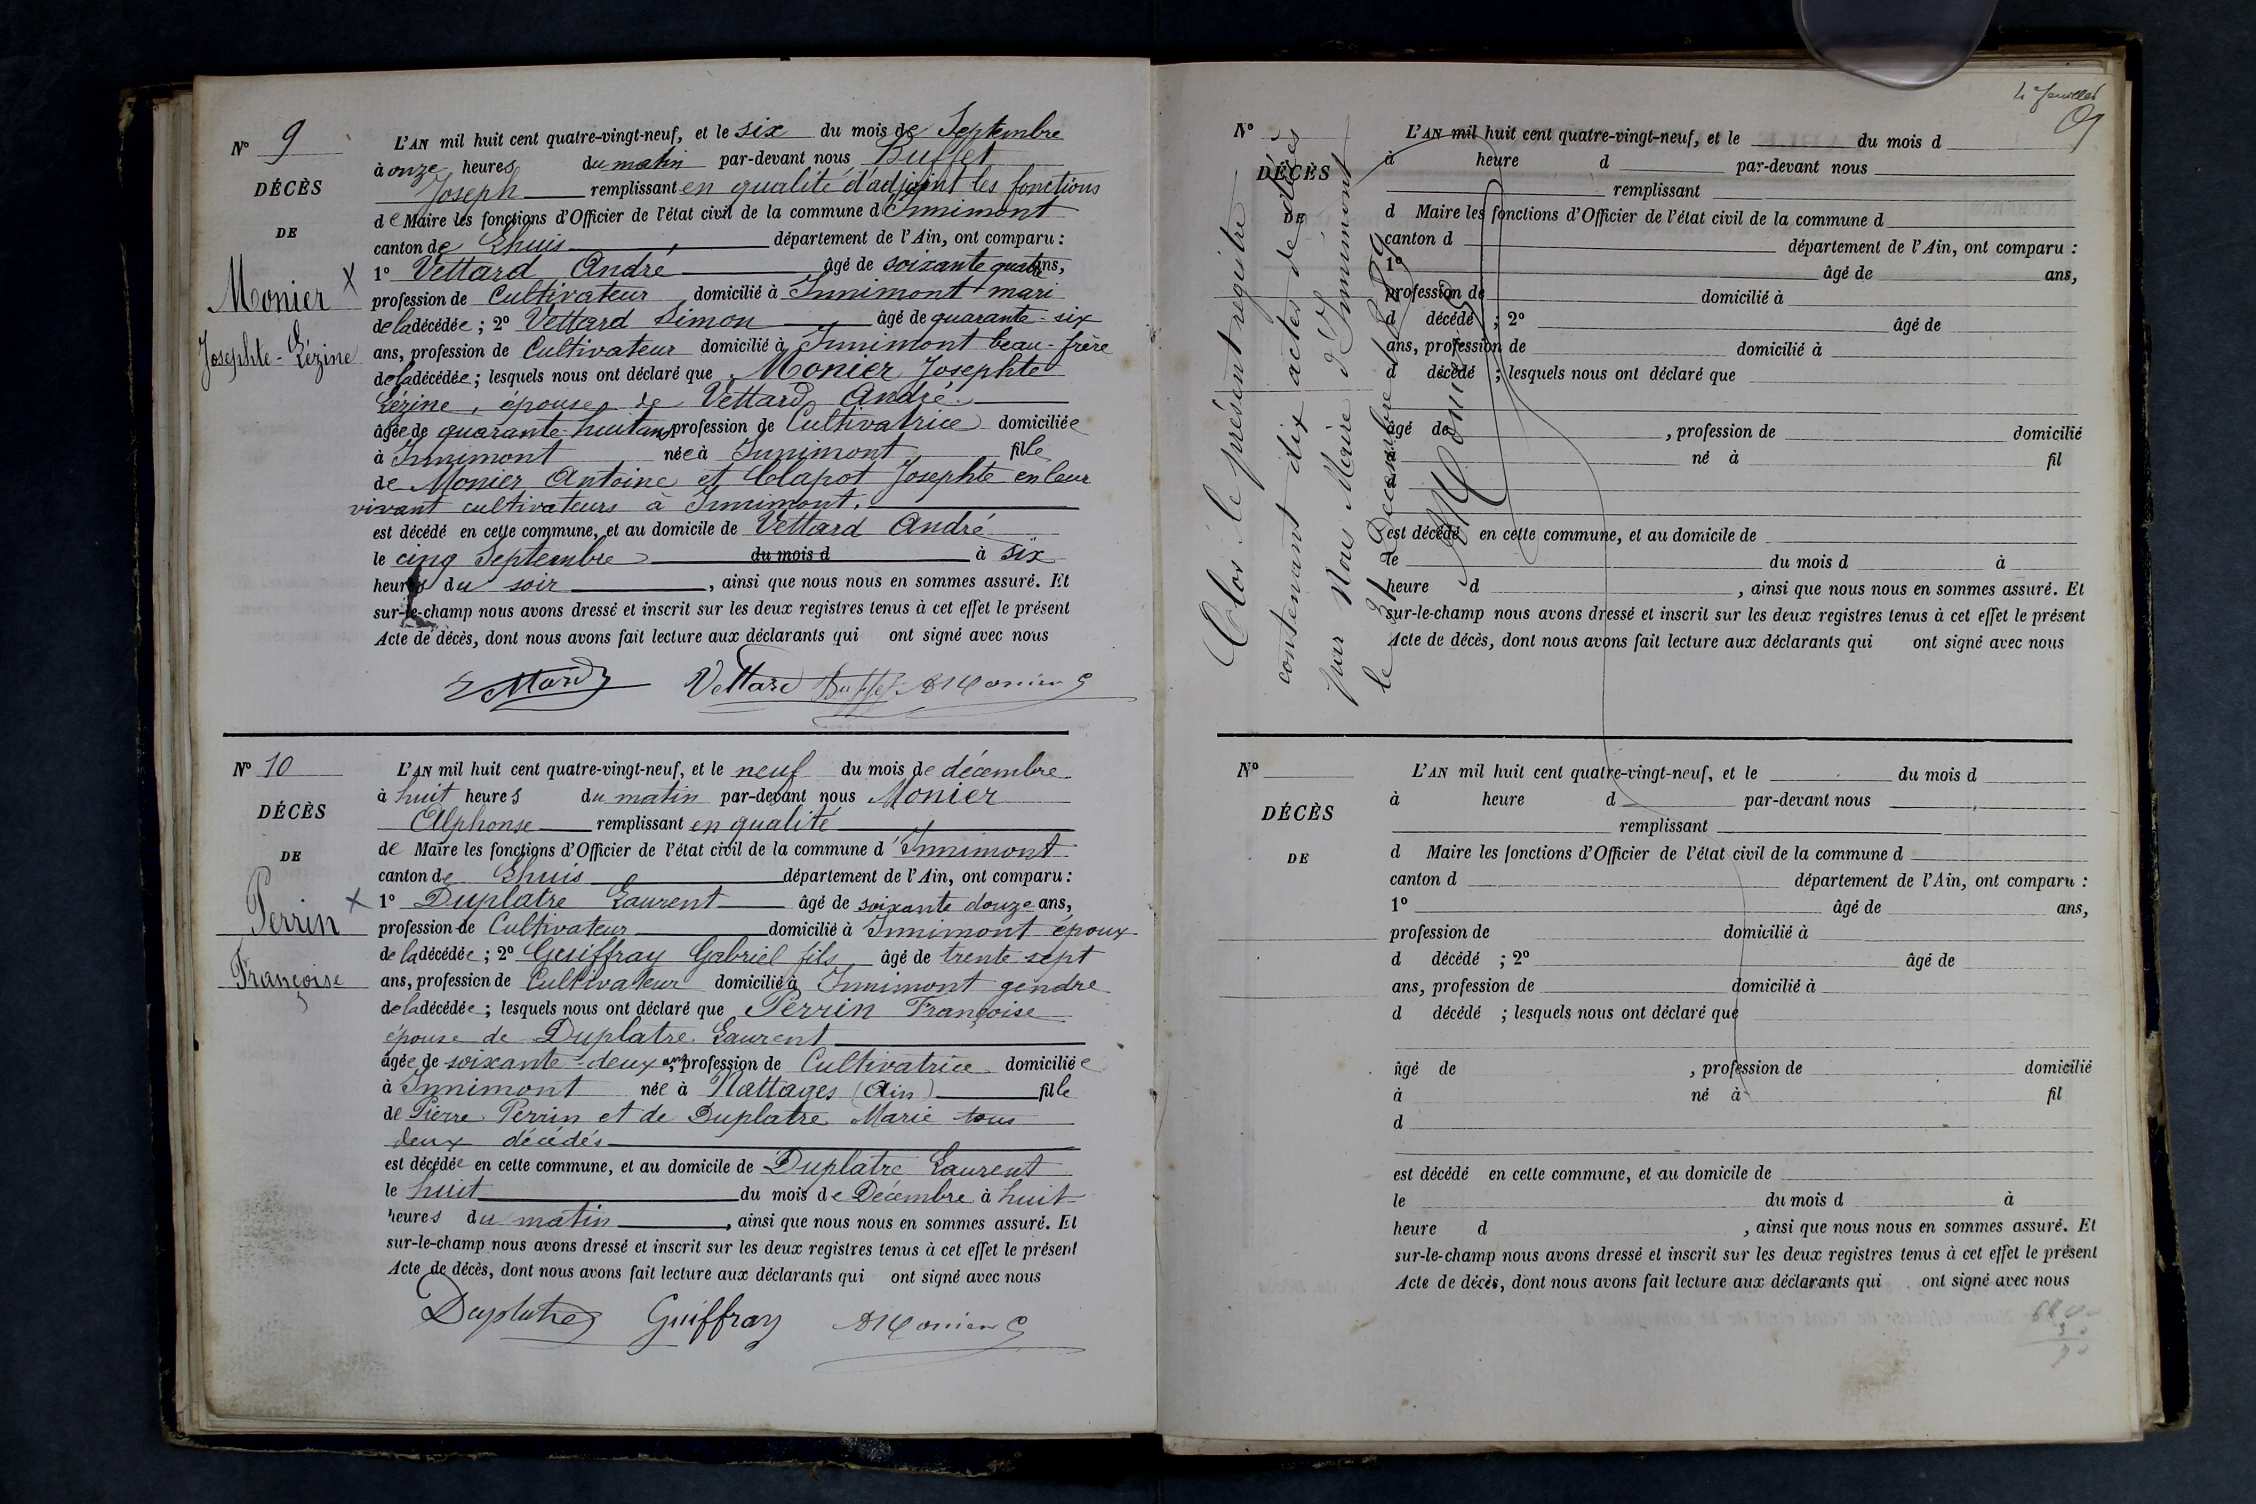 N° 9
DÉCÈS
DE
Monier
Josephte-Lézine
L'AN mil huit cent quatre-vingt-neuf, et le six du mois de Septembre
à onze heures du matin par-devant nous Buffet
Joseph remplissant en qualité d'adjoint les fonctions
de Maire les fonctions d'Officier de l'état civil de la commune d'Innimont
canton de Lhuis département de l'Ain, ont comparu :
1° Vettard André âgé de soixante quatre ans,
profession de Cultivateur domicilié à Innimont mari
de la décédée ; 2° Vettard Simon âgé de quarante-six
ans, profession de Cultivateur domicilié à Innimont beau-frère
de la décédée ; lesquels nous ont déclaré que Monier Josephte
Lézine, épouse de Vettard André.
âgée de quarante-huit ans profession de Cultivatrice domiciliée
à Innimont née à Innimont fille
de Monier Antoine et Clapot Josephte en leur
vivant cultivateurs à Innimont.
est décédé en cette commune, et au domicile de Vettard André
le cinq Septembre du mois d à six
heures du soir , ainsi que nous nous en sommes assuré. Et
sur-le-champ nous avons dressé et inscrit sur les deux registres tenus à cet effet le présent
Acte de décès, dont nous avons fait lecture aux déclarants qui ont signé avec nous
Vettard Vettard Buffet A Monier
N° 10
DÉCÈS
DE
Perrin
Françoise
L'AN mil huit cent quatre-vingt-neuf, et le neuf du mois de décembre
à huit heures du matin par-devant nous Monier
Alphonse remplissant en qualité
de Maire les fonctions d'Officier de l'état civil de la commune d'Innimont
canton de Lhuis département de l'Ain, ont comparu :
1° Duplatre Laurent âgé de soixante douze ans,
profession de Cultivateur domicilié à Innimont époux
de la décédée ; 2° Guiffray Gabriel fils âgé de trente sept
ans, profession de Cultivateur domicilié à Innimont gendre
de la décédée ; lesquels nous ont déclaré que Perrin Françoise
épouse de Duplatre Laurent
âgée de soixante-deux ans, profession de Cultivatrice domiciliée
à Innimont née à Nattages (Ain) fille
de Pierre Perrin et de Duplatre Marie tous
deux décédés
est décédée en cette commune, et au domicile de Duplatre Laurent
le huit du mois de Décembre à huit
heures du matin , ainsi que nous nous en sommes assuré. Et
sur-le-champ nous avons dressé et inscrit sur les deux registres tenus à cet effet le présent
Acte de décès, dont nous avons fait lecture aux déclarants qui ont signé avec nous
Duplatre Guiffray A Monier
4e feuillet
Clos le présent registre
contenant dix actes de décès
par Nous Maire d'Innimont
le 31 Decembre 1889
A Monier
N°
DÉCÈS
DE
L'AN mil huit cent quatre-vingt-neuf, et le du mois d
à heure d par-devant nous
remplissant
d Maire les fonctions d'Officier de l'état civil de la commune d
canton d département de l'Ain, ont comparu :
1° âgé de ans,
profession de domicilié à
d décédé ; 2° âgé de
ans, profession de domicilié à
d décédé ; lesquels nous ont déclaré que
âgé de , profession de domicilié
à né à fil
d
est décédé en cette commune, et au domicile de
le du mois d à
heure d , ainsi que nous nous en sommes assuré. Et
sur-le-champ nous avons dressé et inscrit sur les deux registres tenus à cet effet le présent
Acte de décès, dont nous avons fait lecture aux déclarants qui ont signé avec nous
N°
DÉCÈS
DE
L'AN mil huit cent quatre-vingt-neuf, et le du mois d
à heure d par-devant nous
remplissant
d Maire les fonctions d'Officier de l'état civil de la commune d
canton d département de l'Ain, ont comparu :
1° âgé de ans,
profession de domicilié à
d décédé ; 2° âgé de
ans, profession de domicilié à
d décédé ; lesquels nous ont déclaré que
âgé de , profession de domicilié
à né à fil
d
est décédé en cette commune, et au domicile de
le du mois d à
heure d , ainsi que nous nous en sommes assuré. Et
sur-le-champ nous avons dressé et inscrit sur les deux registres tenus à cet effet le présent
Acte de décès, dont nous avons fait lecture aux déclarants qui ont signé avec nous